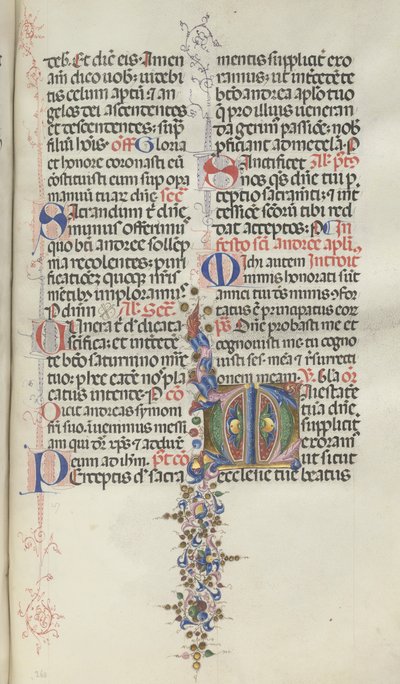 deb. Et dix eis. Amen
am dico uob. uidebi
tis celum aptu & an
gelos dei ascendentes
et descendentes. sup
filiu hois. Off Gloria
et honore coronasti eu
constituisti eum sup opa
manuu tuar dne. Sec
Sacrandum t dne
munus offerimus
quo bti andree sollep
nia recolentes. puri
ficatioez quoqz nris
mentibz imploram9
P dnm Al. Sec.
Munera t dne dicata
sctifica. et intercedete
bto saturnino mre
tuo. p hec eade nos pla
catus intende. P Co
Dicit andreas symoni
fri suo. inuenimus messi
am qui dr xps. & adduxit
eum ad ihm. Pt co
Perceptis d ne sacra
mentis supplices exo
ramus. ut intercedete
bto andrea aplo tuo
q pro illius ueneran
da gerim9 passioe. nob
pficiant ad medela. P
Sanctificet Al. Pt co
nos qs dne tui p
ceptio sacramti. & int
cessioe scoru tibi red
dat acceptos. P In
festo sci andree apli.
Michi autem Introit
nimis honorati sut
amici tui ds. nimis 9for
tatus e principatus eor
Ps Dne probasti me et
cognouisti me. tu cogno
uisti sessione mea & resurrecti
onem meam. V. Gla Or
Maiestate
tua dne
supplicit
exoram9
ut sicut
ecclesie tue beatus
260